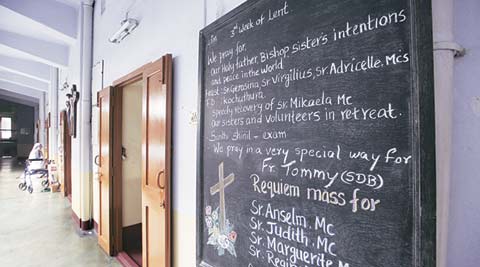 3rd Week of Lent
We pray for,
Our Holy father, Bishop sister's intentions
and peace in the world.
Feast: Sr. Gerasina, Sr Virgilius, Sr. Adricelle. Mcs
F.D : Kochuthura.
Speedy recovery of Sr. Mikaela Mc
Our sisters and volunteers in retreat.
Sunil - exam
We pray in a very special way for
Fr. Tommy (SDB)
Requiem mass for
Sr. Anselm. MC
Sr. Judith. MC
Sr. Marguerite M